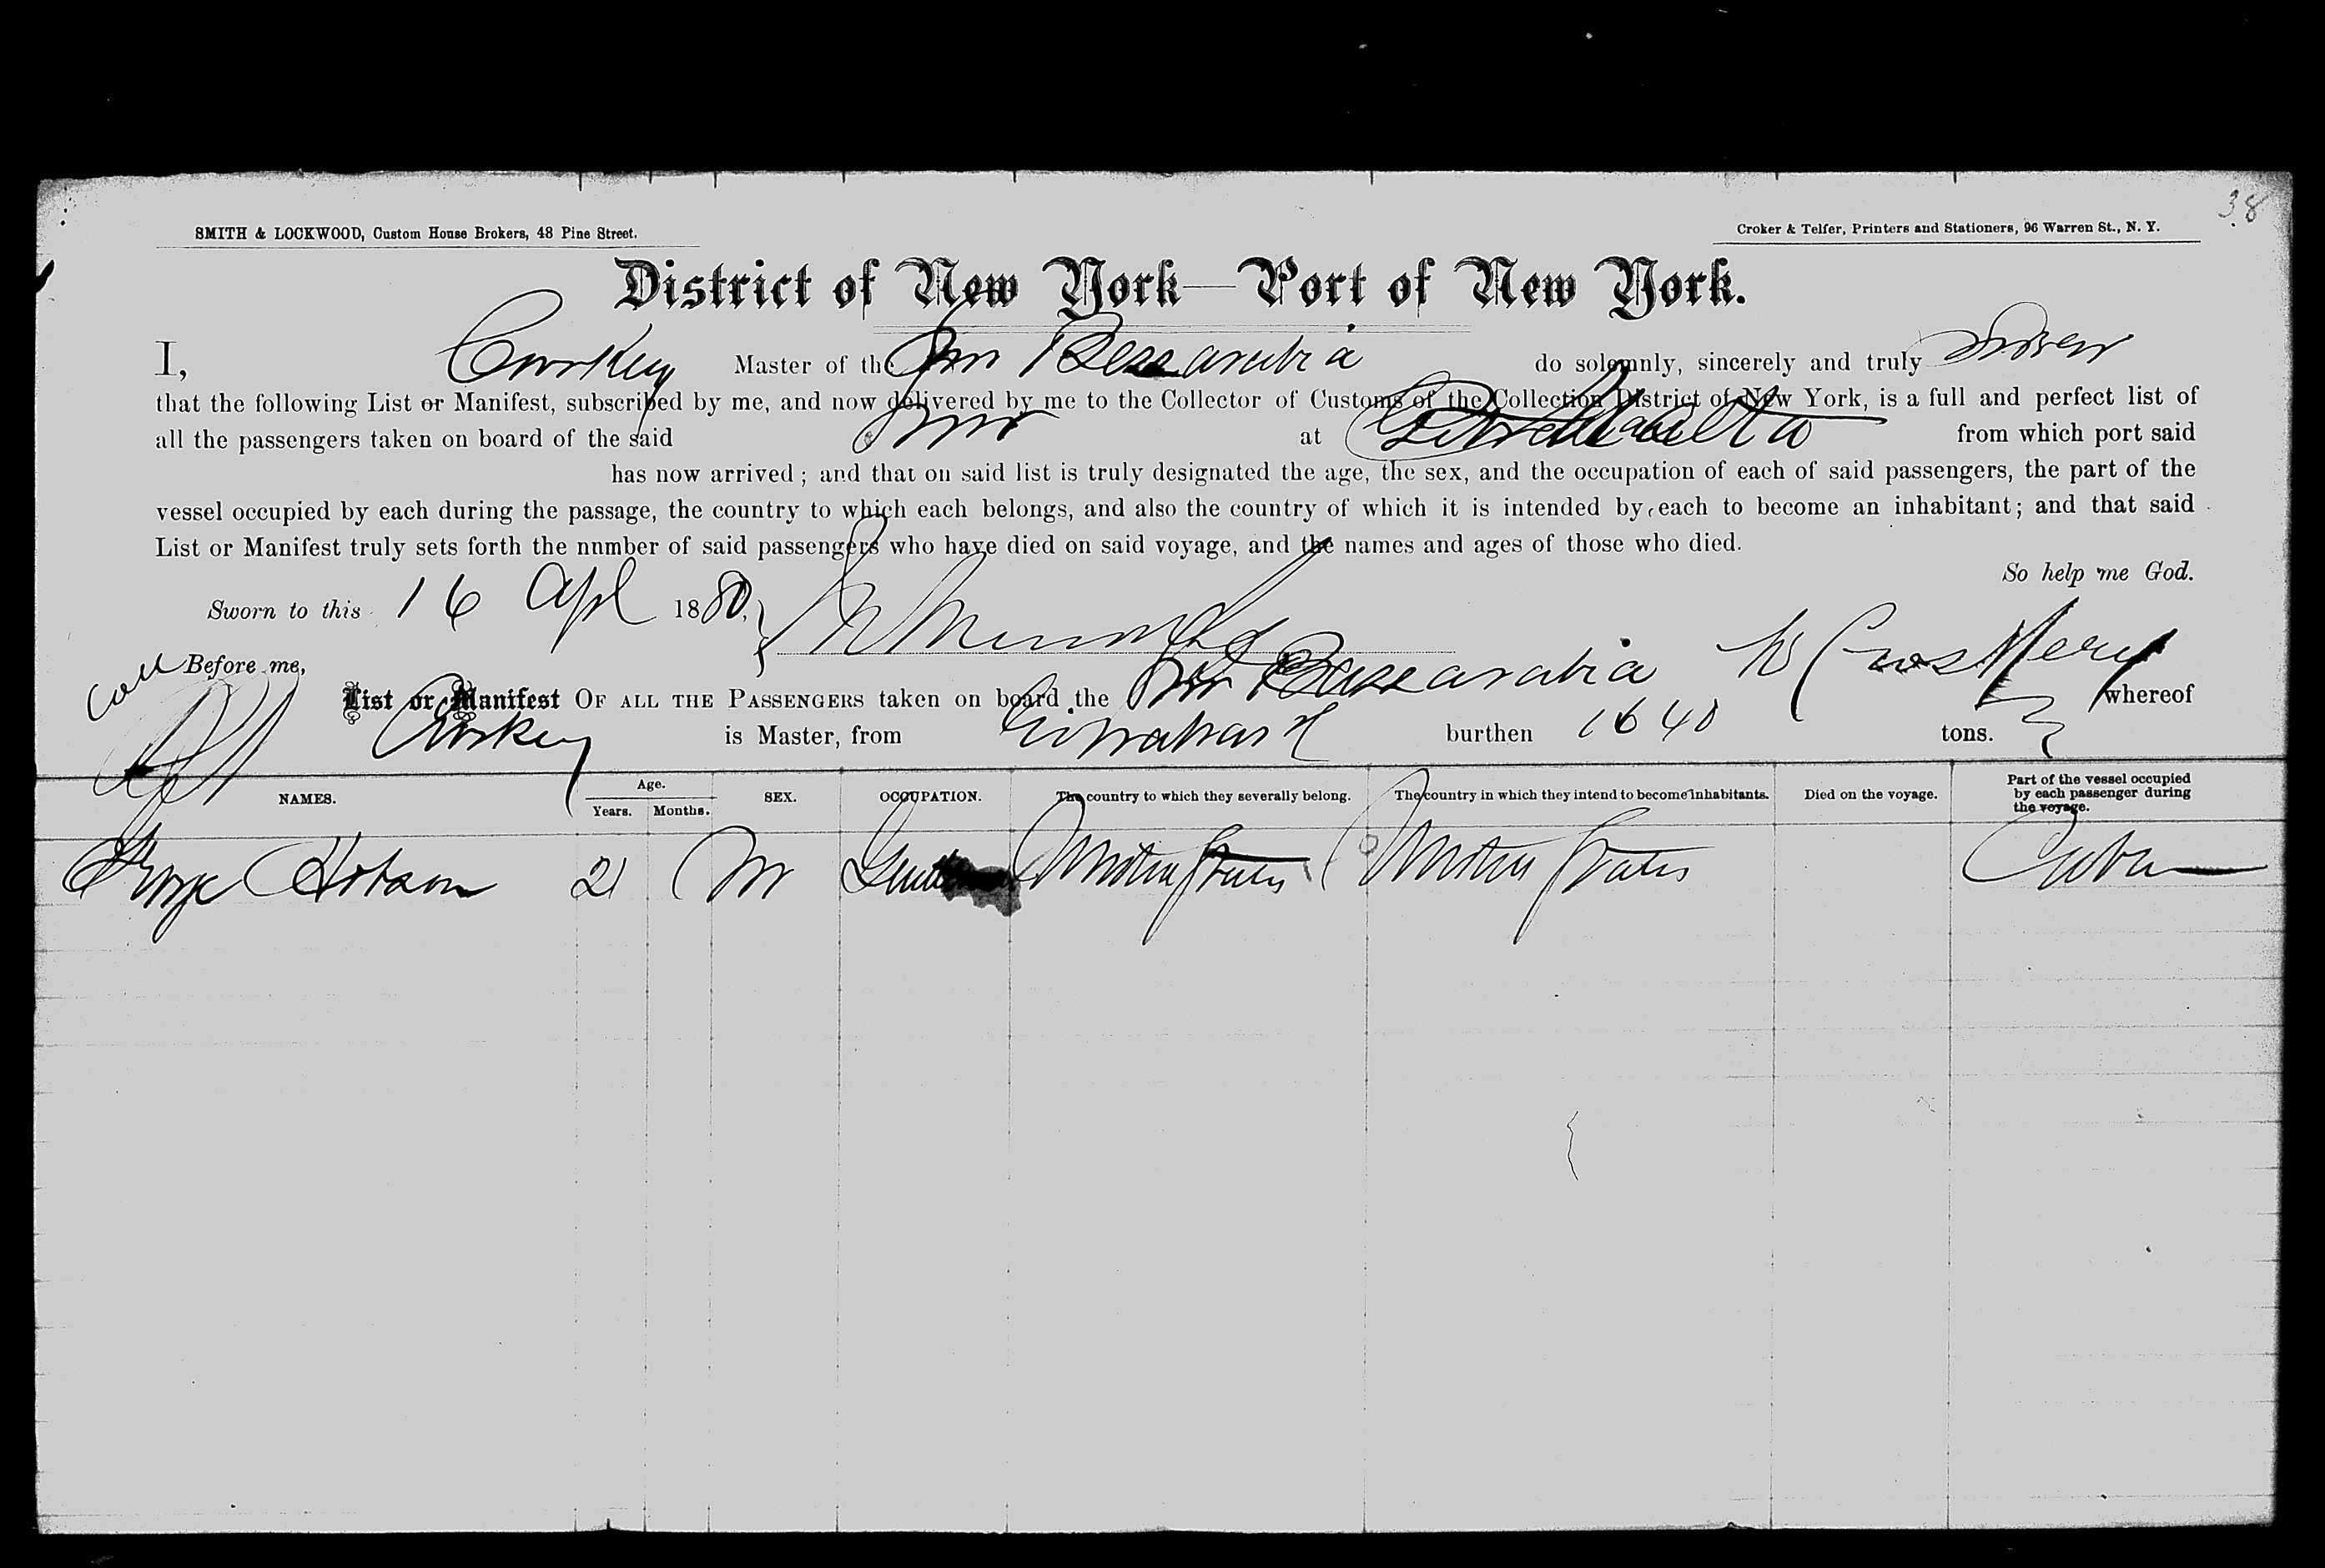 38
SMITH & LOCKWOOD, Custom House Brokers, 48 Pine Street.
Croker & Telfer, Printers and Stationers, 96 Warren St., N. Y.
District of New York—Port of New York.
I, Master of the Bessarabia do solemnly, sincerely and truly swear
that the following List or Manifest, subscribed by me, and now delivered by me to the Collector of Customs of the Collection District of New York, is a full and perfect list of
all the passengers taken on board of the said at from which port said
has now arrived; and that on said list is truly designated the age, the sex, and the occupation of each of said passengers, the part of the
vessel occupied by each during the passage, the country to which each belongs, and also the country of which it is intended by each to become an inhabitant; and that said
List or Manifest truly sets forth the nnmber of said passengers who have died on said voyage, and the names and ages of those who died.
So help me God.
Sworn to this 16 Apl 1880,
Before me,
List or Manifest OF ALL THE PASSENGERS taken on board the Bessarabia whereof
is Master, from Gibraltar burthen 1640 tons.
NAMES. Age. Years. Months. SEX. OCCUPATION. The country to which they severally belong. The country in which they intend to become inhabitants. Died on the voyage. Part of the vessel occupied by each passenger during the voyage.
George Hobson 21 M United States United States Cabin